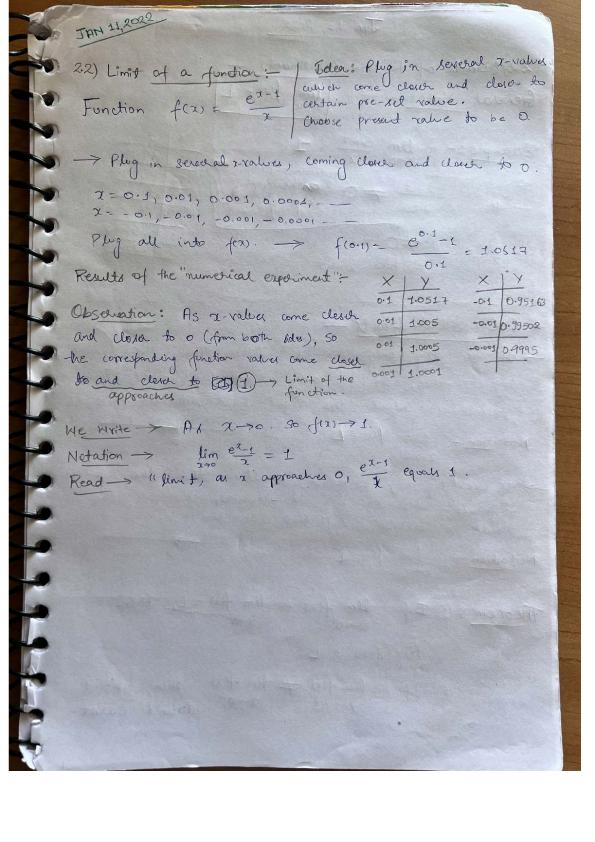 JAN 11, 2022
2.2) Limit of a function:-
Function f(x) = e^x-1 / x
Idea: Plug in several x-values
which come closer and closer to
certain pre-set value.
Choose preset value to be 0.
→ Plug in several x-values, coming closer and closer to 0.
x = 0.1, 0.01, 0.001, 0.0001, - - —
x = -0.1, -0.01, -0.001, -0.0001 - - —
Plug all into f(x). → f(0.1) = e^0.1 -1 / 0.1 = 1.0517
Results of the "numerical experiment":-
X | Y
0.1 | 1.0517
0.01 | 1.005
0.01 | 1.0005
0.001 | 1.0001
X | Y
-0.1 | 0.95163
-0.01 | 0.99502
-0.001 | 0.9995
Observation: As x-values come closer
and closer to 0 (from both sides), so
the corresponding function values come closer
to and closer to 1 → Limit of the
function.
approaches
We Write → As x→0. So f(x)→1.
Notation → lim x→0 e^x-1 / x = 1
Read → "limit, as x approaches 0, e^x-1 / x equals 1.